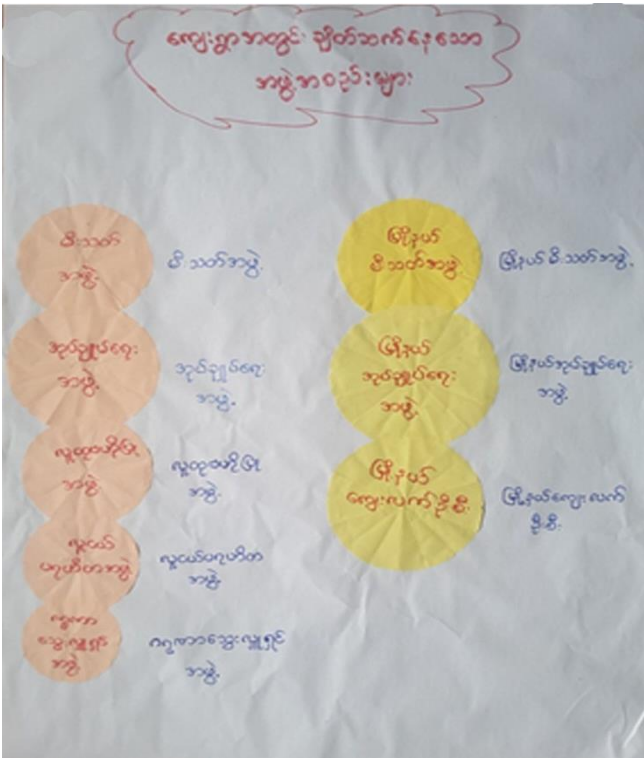 ကျေးရွာအတွင်း ချိတ်ဆက်နေသော
အဖွဲ့အစည်းများ
မီးသတ်
အဖွဲ့
မီးသတ်အဖွဲ့
အုပ်ချုပ်ရေး
အဖွဲ့
အုပ်ချုပ်ရေး
အဖွဲ့
လူထုဗဟိုပြု
အဖွဲ့
လူထုဗဟိုပြု
အဖွဲ့
လူငယ်
ပရဟိတအဖွဲ့
လူငယ်ပရဟိတ
အဖွဲ့
ကရုဏာ
သွေးလှူရှင်
အဖွဲ့
ဂရုဏာသွေးလှူရှင်
အဖွဲ့
မြို့နယ်
မီးသတ်အဖွဲ့
မြို့နယ်မီးသတ်အဖွဲ့
မြို့နယ်
အုပ်ချုပ်ရေး
အဖွဲ့
မြို့နယ်အုပ်ချုပ်ရေး
အဖွဲ့
မြို့နယ်
ကျေးလက်ဦးစီး
မြို့နယ်ကျေးလက်
ဦးစီး